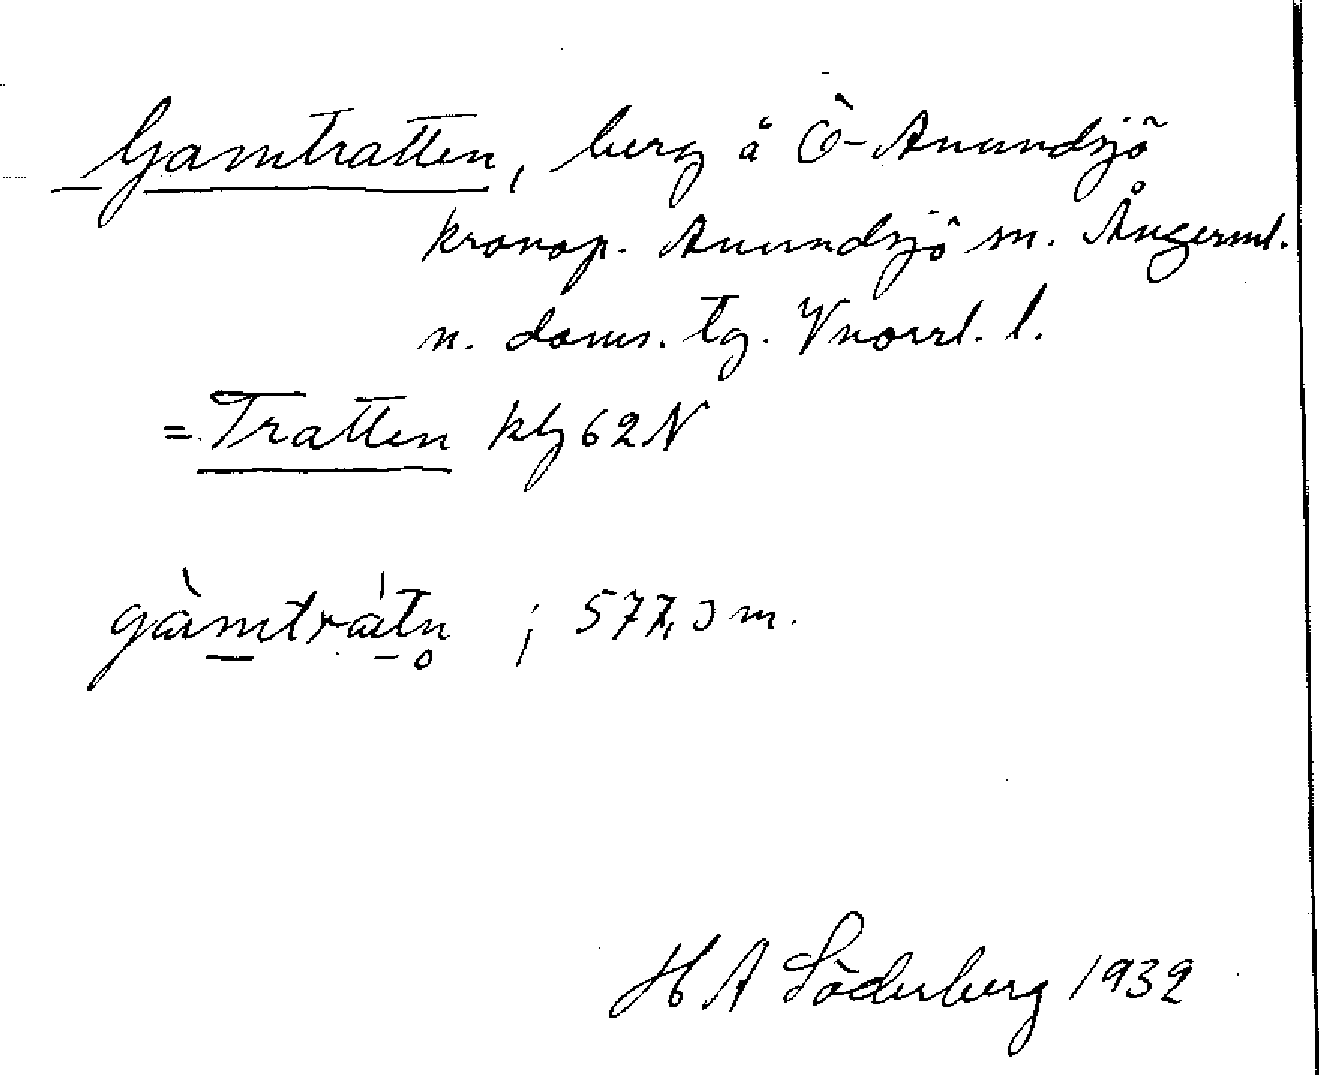 Gamtratten, berg å Ö-Anundsjö
kronop. Anundsjö sn. Ångerml.
n. doms. tg. Vnorrl. l.
= Tratten kbl 62 N
gàmtrátn̥ ; 577,3 m.
H A Söderberg 1932